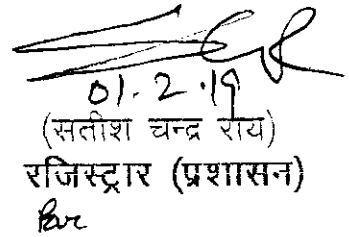 01.2.19
(सतीश चन्द्र राय)
रजिस्ट्रार (प्रशासन)